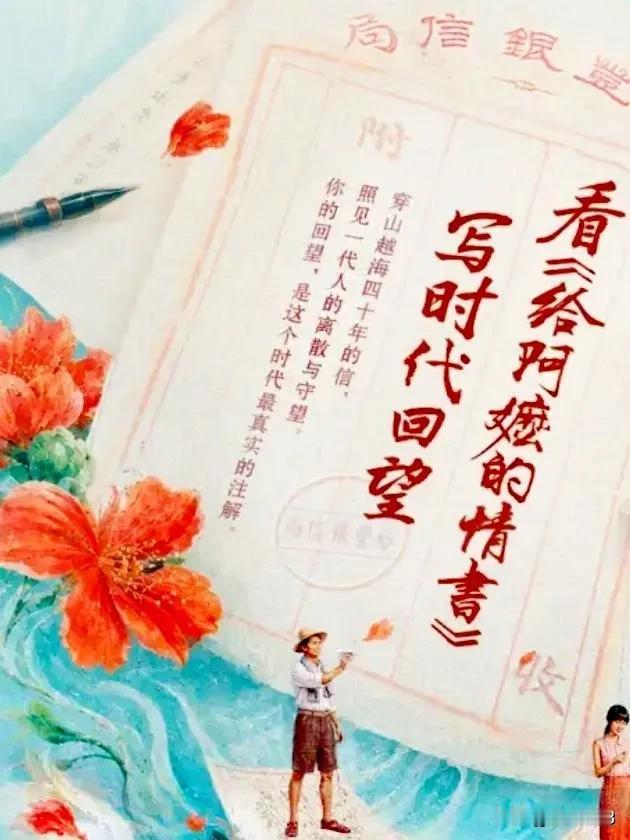 局信銀豐
附
看《给阿嬷的情書》
写时代回望
穿山越海四十年的信，
照见一代人的离散与守望。
你的回望，是这个时代最真实的注解。
局信銀豐
收